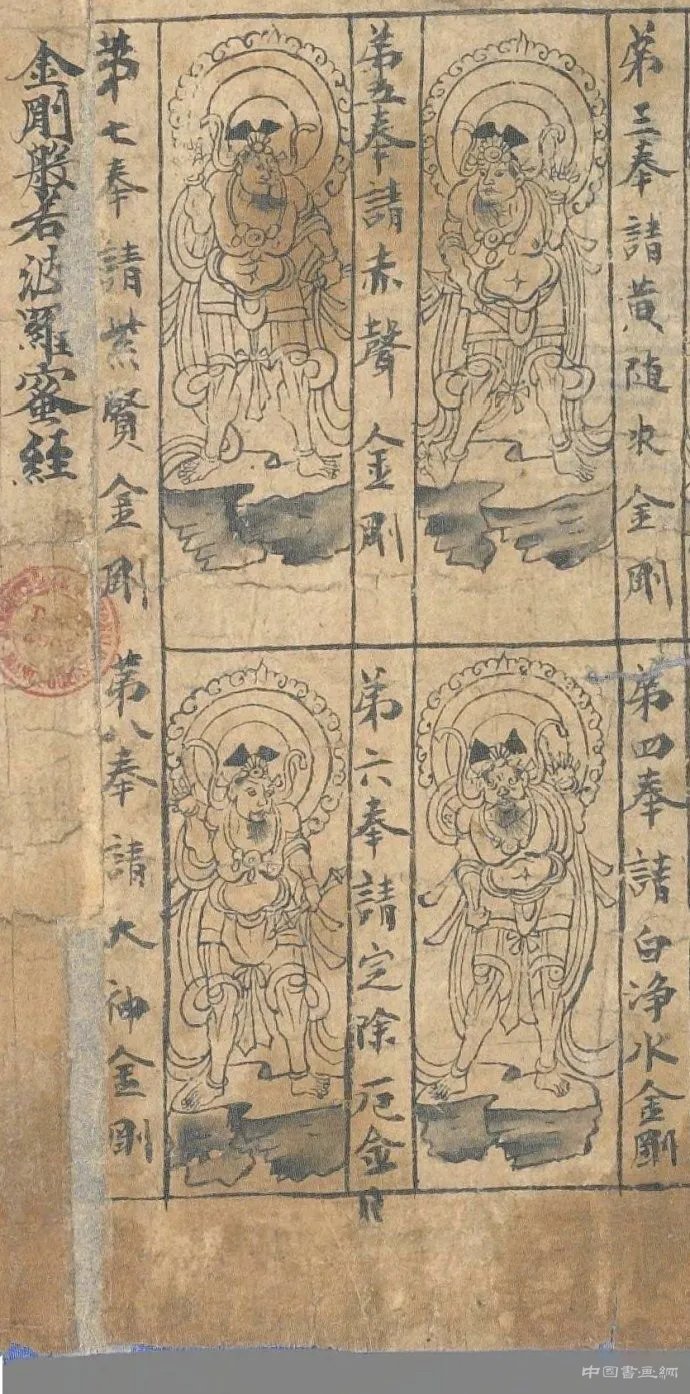 第三奉請黄随求金剛
第四奉請白浄水金剛
第五奉請赤聲金剛
第六奉請定除厄金剛
第七奉請紫賢金剛
第八奉請大神金剛
金剛般若波羅蜜経
中国書画網